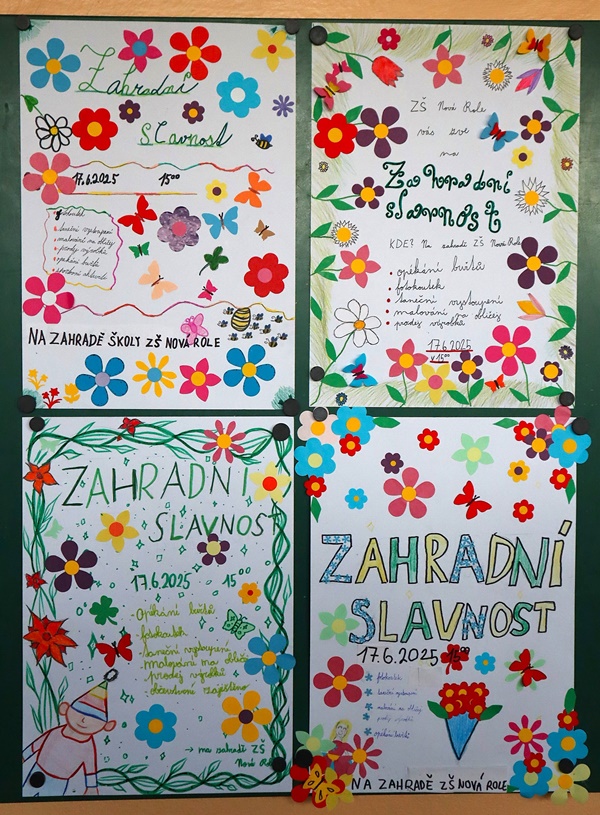 Zahradní
slavnost
17.6.2025 15⁰⁰
fotokoutek
taneční vystoupení
malování na obličej
prodej výrobků
opékání buřtů
NA ZAHRADĚ ŠKOLY ZŠ NOVÁ ROLE
ZŠ Nová Role
vás zve
na
Zahradní
slavnost
KDE? Na zahradě ZŠ Nová Role
opékání buřtů
fotokoutek
taneční vystoupení
malování na obličej
prodej výrobků
17.6.2025
v 15⁰⁰
ZAHRADNÍ
SLAVNOST
17.6.2025 15⁰⁰
Opékání buřtů
fotokoutek
taneční vystoupení
malování na obličej
prodej výrobků
občerstvení zajištěno
→ na zahradě ZŠ
Nová Role
ZAHRADNÍ
SLAVNOST
17.6.2025 15⁰⁰
fotokoutek
taneční vystoupení
malování na obličej
prodej výrobků
opékání buřtů
NA ZAHRADĚ ZŠ NOVÁ ROLE